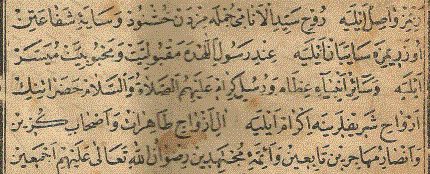 واصل ايليه روح سيد الانامى جمله مزدن خشنود و سايۀ شفاعتن
اوزريمزه سايبان ايليه عند رسول الله ده مقبوليت و محبوبيت ميسر
ايليه و سائر انبياء عظام و رسل كرام عليهم الصلاة والسلام حضراتنك
ارواح شريفلرينه اكرام ايليه ال ازواج طاهرات و اصحاب گزين
وانصار مهاجرين تابعين وائمۀ مجتهدين رضوان الله تعالى عليهم اجمعين